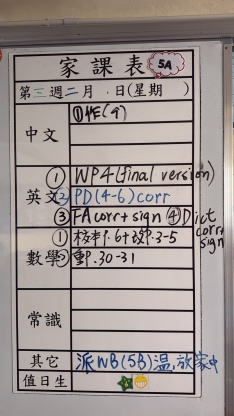 家課表 5A
第三週二月 . 日(星期 )
中文 ①作(9)
① WP4(final version)
英文 ② PD(4-6) corr
③ FA corr + sign ④ Dict corr + sign
① 校本P.6+ P.3-5
數學 ② P.30-31
常識
其它 派WB(5B)溫,放家中
值日生